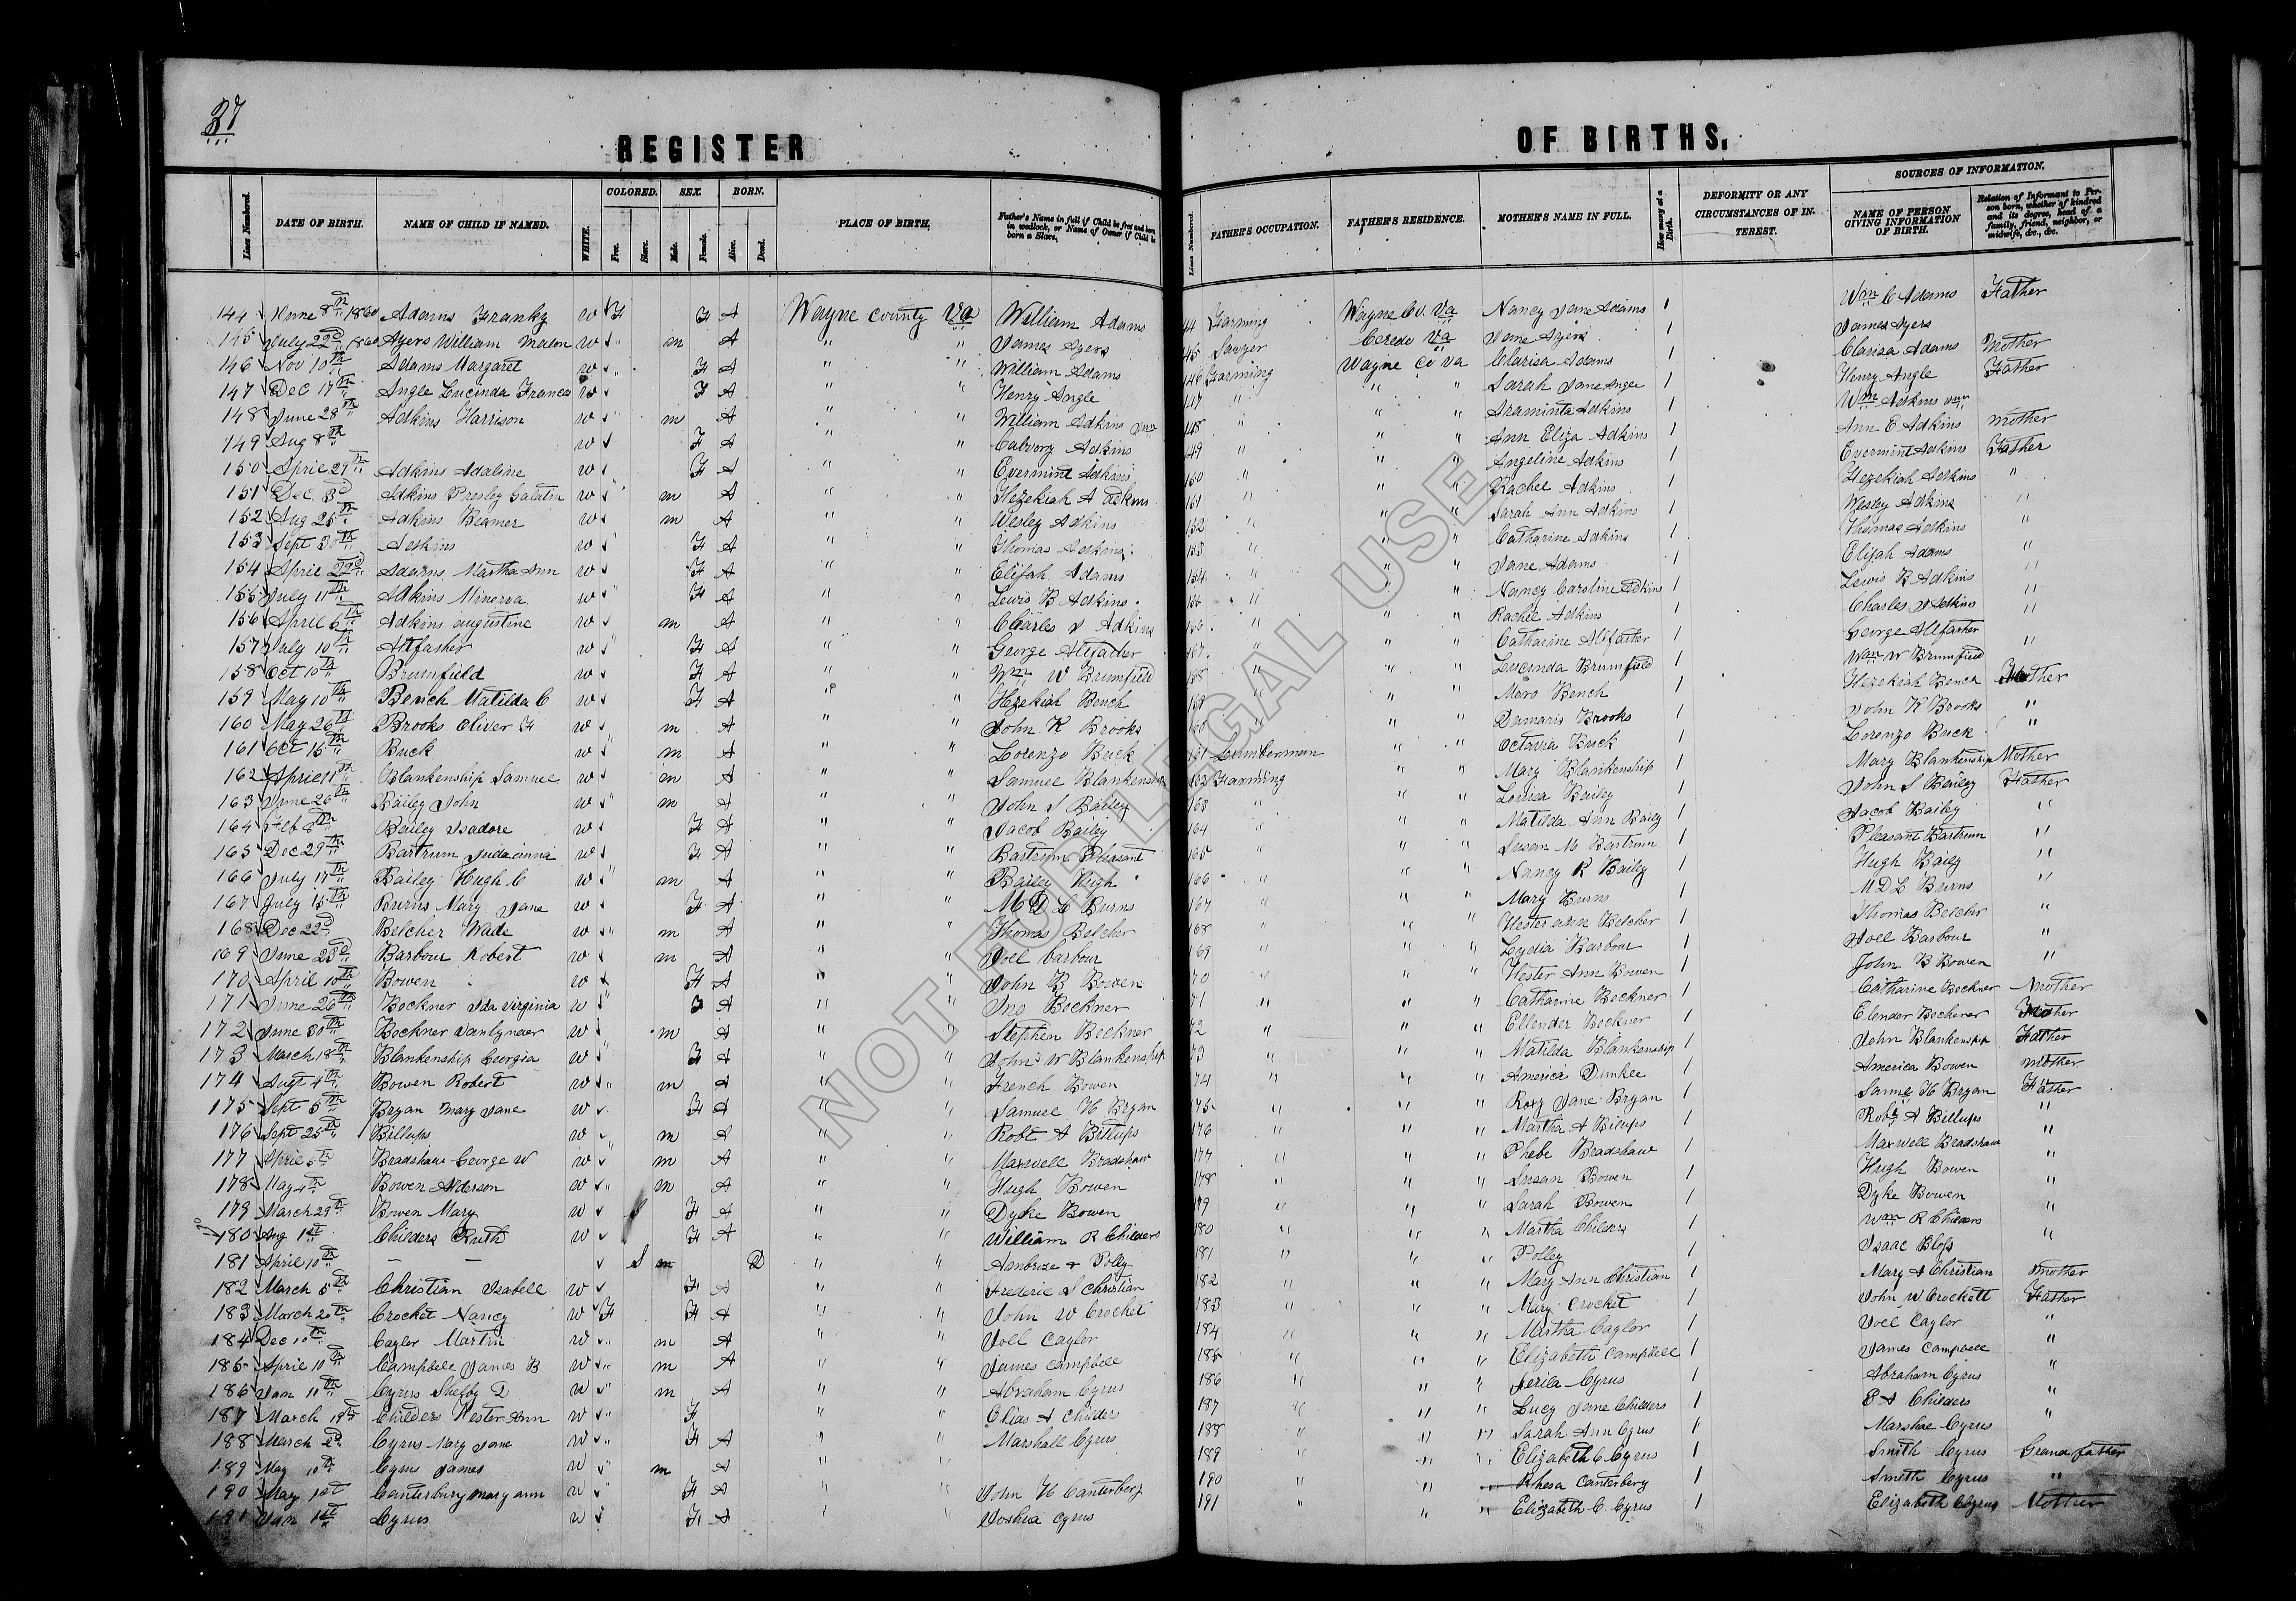 37
REGISTER OF BIRTHS.
Lines Numbered. DATE OF BIRTH. NAME OF CHILD IF NAMED. WHITE. COLORED. Free. Slave. SEX. Male. Female. BORN. Alive. Dead. PLACE OF BIRTH. Father's Name in full if Child be free and born in wedlock, or Name of Owner if Child be born a Slave. Lines Numbered. FATHER'S OCCUPATION. FATHER'S RESIDENCE. MOTHER'S NAME IN FULL. How many at a Birth. DEFORMITY OR ANY CIRCUMSTANCES OF INTEREST. SOURCES OF INFORMATION. NAME OF PERSON GIVING INFORMATION OF BIRTH. Relation of Informant to Person born, whether of kindred and its degree, head of a family, friend, neighbor, or midwife, &c., &c.
144 June 8th 1860 Adams Franky w F F A Wayne county Va William Adams 44 Farming Wayne Co. Va Nancy Jane Adams 1 Wm C Adams Father
145 July 22d 1860 Ayers William Malon w " m A " " James Ayers 45 Sawyer Ceredo Va Jane Ayers 1 James Ayers
146 Nov 10th Adams Margaret w " F A " " William Adams 146 Farming Wayne Co Va Clarisa Adams 1 Clarisa Adams Mother
147 Dec 17th Angle Lucinda Frances w F A " " Henry Angle 147 " " " Sarah Jane Angle 1 Henry Angle Father
148 June 28th Adkins Harrison w " m A " " William Adkins Jnr 148 " " " Araminta Adkins 1 Wm Adkins Jnr
149 Aug 8th w F A " " Calvary Adkins 149 " " " Ann Eliza Adkins 1 Ann E Adkins mother
150 April 29th Adkins Adaline w F A " " Evermint Adkins 150 " " " Angeline Adkins 1 Evermint Adkins Father
151 Dec 3d Adkins Presley Galatin w " m A " " Hezekiah Adkins 151 " " " Rachel Adkins 1 Hezekiah Adkins "
152 Aug 25th Adkins Beamer w m A " " Wesley Adkins 152 " " " Sarah Ann Adkins 1 Wesley Adkins "
153 Sept 30th Adkins w " F A " " Thomas Adkins 153 " " " Catharine Adkins 1 Thomas Adkins "
154 April 22d Adams Martha Ann w F A " " Elijah Adams 154 " " " Jane Adams 1 Elijah Adams "
155 July 11th Adkins Minerva w " F A " " Lewis B Adkins 155 " " " Nancy Caroline Adkins 1 Lewis B Adkins "
156 April 5th Adkins augustine w m A " " Charles J Adkins 156 " " " Rachel Adkins 1 Charles J Adkins "
157 July 10th Altfather w " F A " " George Altfather 157 " " " Catharine Altfather 1 George Altfather "
158 Oct 10th Brumfield w F A " " Wm W Brumfield 158 " " " Lucinda Brumfield 1 Wm W Brumfield
159 May 10th Bench Matilda C w F A " " Hezekiah Bench 159 " " " Mary Bench 1 Hezekiah Bench Father
160 May 26th Brooks Oliver F w m A " " John K Brooks 160 " " " Damaris Brooks 1 John K Brooks "
161 Oct 15th Buck w " m A " " Lorenzo Buck 161 Lumberman " " Octavia Buck 1 Lorenzo Buck "
162 April 11th Blankenship Samuel w m A " " Samuel Blankenship 162 Farming " " Mary Blankenship 1 Mary Blankenship Mother
163 June 26th Bailey John w " m A " " John S Bailey 163 " " " Louisa Bailey 1 John S Bailey Father
164 Feb 8th Bailey Isadore w F A " " Jacob Bailey 164 " " " Matilda Ann Baily 1 Jacob Bailey "
165 Dec 29th Bartrum w F A " " Bartrum Pleasant 165 " " " Susan M Bartrum 1 Pleasant Bartrum "
166 July 17th Bailey Hugh C w " m A " " Bailey Hugh 166 " " " Nancy R Bailey 1 Hugh Baily "
167 July 15th Burns Mary Jane w F A " " M D L Burns 167 " " " Mary Burns 1 M D L Burns "
168 Dec 22d Belcher Wade w " m A " " Thomas Belcher 168 " " " Hester ann Belcher 1 Thomas Belcher "
169 June 23d Barbour Robert w m A " " Joel barbour 169 " " " Lydia Barbour 1 Joel Barbour "
170 April 10th Bowen w F A " " John B Bowen 70 " " " Hester Ann Bowen 1 John B Bowen
171 June 26th Beckner Ida virginia w " F A " " Jno Beckner 71 " " " Catharine Beckner 1 Catharine Beckner Mother
172 June 30th Beckner w m A " " Stephen Beckner 72 " " " Ellender Beckner 1 Elender Beckener Mother
173 March 18th Blankenship Georgia w " F A " " John W Blankenship 73 " " " Matilda Blankenship 1 John Blankenship Father
174 Augt 4th Bowen Robert w " m A " " French Bowen 74 " " " America Dunkle 1 America Bowen mother
175 Sept 5th Bryan Mary Jane w F A " " Samuel H Bryan 175 " " " Roxy Jane Bryan 1 Samle H Bryan Father
176 Sept 25th Billups w m A " " Robt A Billups 176 " " " Martha A Bilups 1 Robt A Billups "
177 April 5th Bradshaw George W w " m A " " Maxwell Bradshaw 177 " " " Phebe Bradshaw 1 Maxwell Bradshaw "
178 May 4th Bowen Alderson w " m A " " Hugh Bowen 178 " " " Susan Bowen 1 Hugh Bowen "
179 March 29th Bowen Mary w F A " " Dyke Bowen 179 " " " Sarah Bowen 1 Dyke Bowen "
180 Aug 1st Childers Ruth w F A " " William R Childers 180 " " " Martha Childers 1 Wm R Childers "
181 April 10th — — S m D " " Ambrose & Polly 181 " " " Polley 1 Isaac Bloss "
182 March 5th Christian Isabell w F A " " Frederic S Christian 182 " " " Mary Ann Christian 1 Mary A Christian mother
183 March 20th Crocket Nancy w F F A " " John W Crocket 183 " " " Mary Crocket 1 John W Crockett Father
184 Dec 10th Caylor Martin w " m A " " Joel Caylor 184 " " " Martha Caylor 1 Joel Caylor "
185 April 10th Campbell James B w " m A " " James Campbell 185 " " " Elizabeth Campbell 1 James Campbell "
186 Jan 11th Cyrus Shelby w " m A " " Abraham Cyrus 186 " " " Jerila Cyrus 1 Abraham Cyrus "
187 March 19th Childers Hester Ann w " F " " Elias A Childers 187 " " " Lucy Jane Childers 1 E A Childers "
188 March 2d Cyrus Mary Jane w " F A " " Marshall Cyrus 188 " " " Sarah Ann Cyrus 1 Marshal Cyrus "
189 May 10th Cyrus James w " m A " " 189 " " " Elizabeth C Cyrus 1 Smith Cyrus Grand father
190 May 1st Canterbury mary ann w " F A " " John H Canterbery 190 " " " Rhesa Canterbery 1 Smith Cyrus "
191 Jan 1st Cyrus w F A " " Joshua Cyrus 191 " " " Elizabeth C. Cyrus 1 Elizabeth Cyrus Mother
NOT FOR LEGAL USE